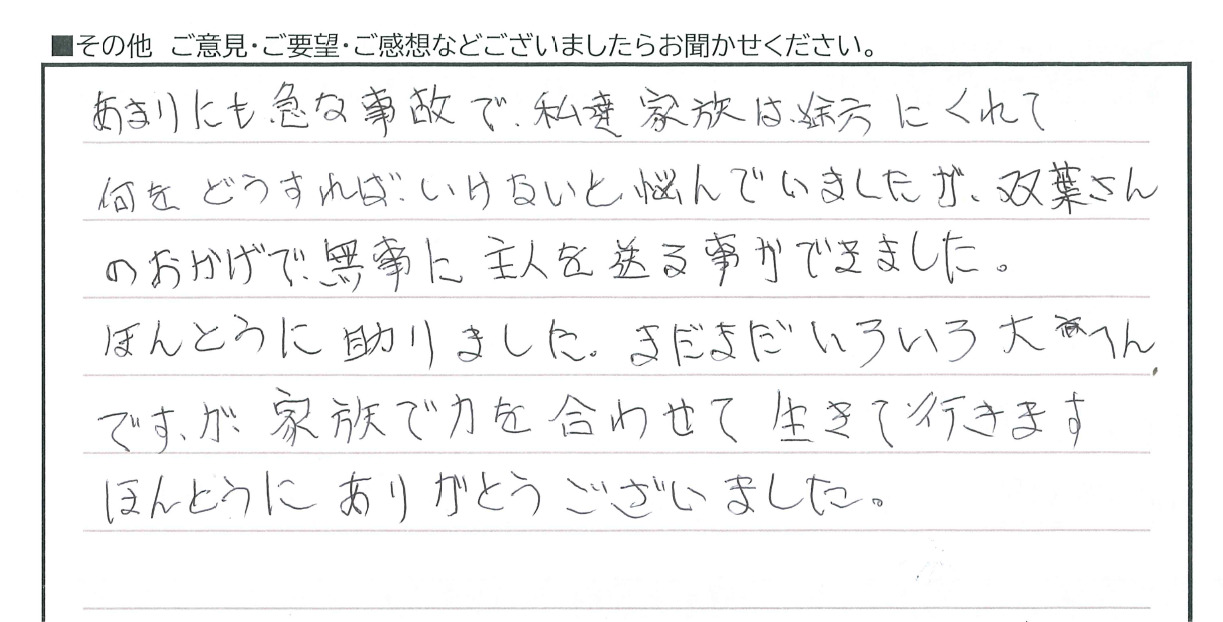 ■その他 ご意見・ご要望・ご感想などございましたらお聞かせください。
あまりにも急な事故で、私達家族は、途方にくれて
何をどうすれば、いけないと悩んでいましたが、双葉さん
のおかげで、無事に主人を送る事ができました。
ほんとうに助りました。まだまだいろいろ大へん
です、が、家族で力を合わせて生きて行きます
ほんとうにありがとうございました。